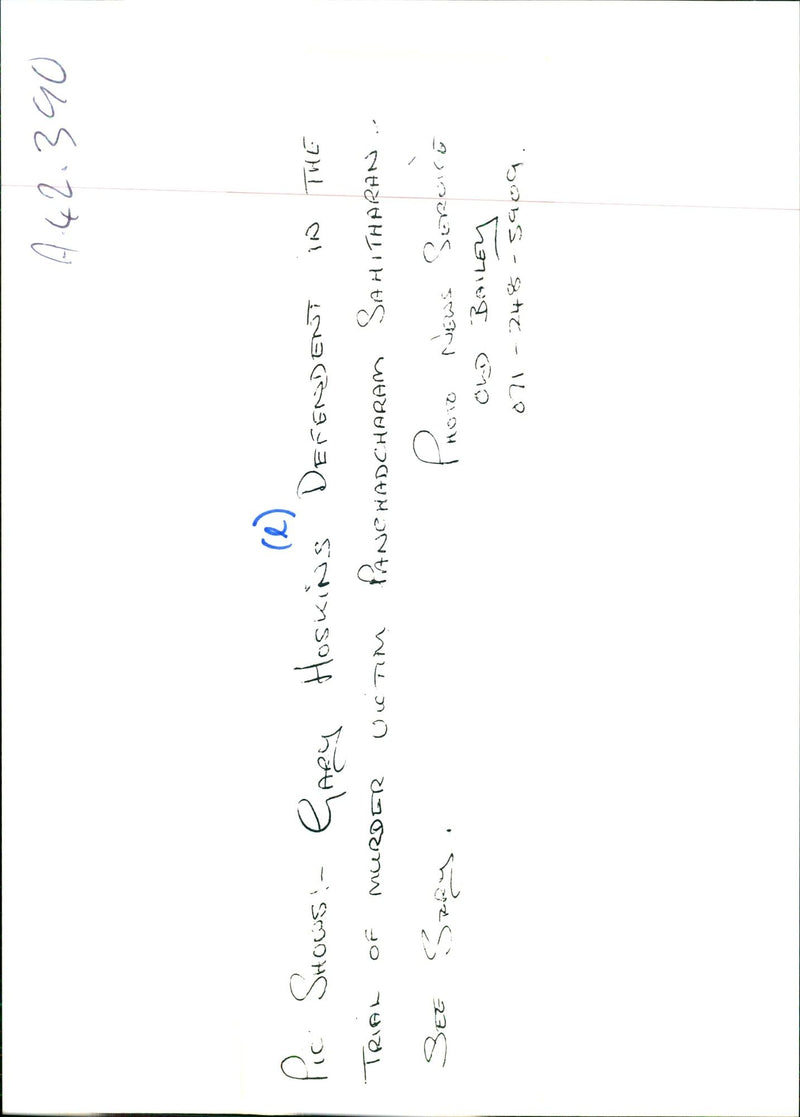 A.42.390
(l)
PIC SHOWS:- GARY HOSKINS DEFENDENT IN THE
TRIAL OF MURDER VICTIM PANCHADCHARAM SAHITHARAN..
SEE STORY.
PHOTO NEWS SERVICE
OLD BAILEY
071-248-5909.